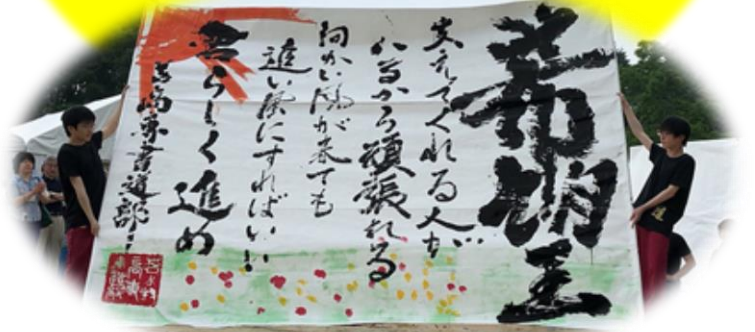 希望
支えてくれる人が
いるから頑張れる
向かい風が来ても
追い風にすればいい
らしく進め
書道部!